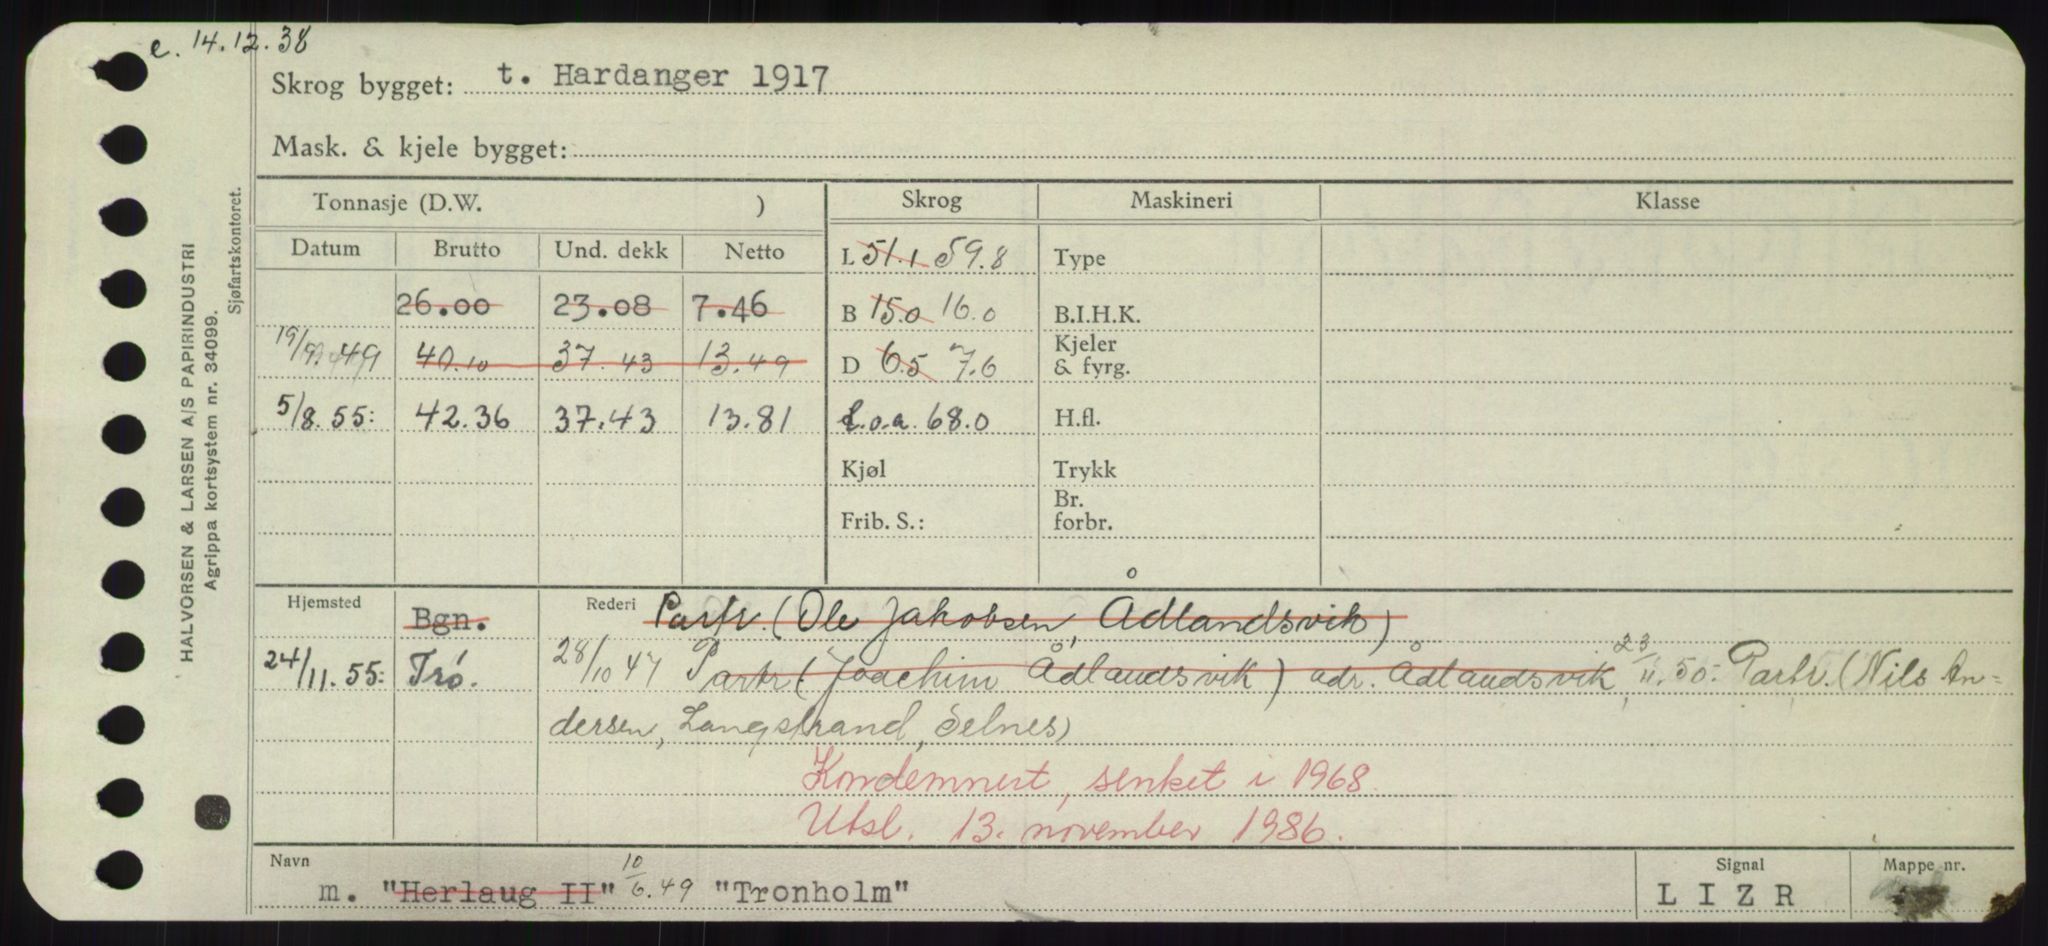 e. 14.12.38
Skrog bygget: t. Hardanger 1917
Mask. & kjele bygget:
Tonnasje (D.W. ) Skrog Maskineri Klasse
Datum Brutto Und. dekk Netto L 51.1 59.8 Type
26.00 23.08 7.46 B 15.0 16.0 B.I.H.K.
19/9.49 40.10 37.43 13.49 D 6.5 7.6 Kjeler & fyrg.
5/8.55: 42.36 37.43 13.81 L.o.a. 68.0 H.fl.
Kjøl Trykk
Frib. S.: Br. forbr.
Hjemsted Bgn. Rederi Partr. (Ole Jakobsen, Ådlandsvik)
24/11.55: Tró. 28/10 47 Partr. (Joachim Ådlandsvik) adr. Ådlandsvik, 23/11.50: Partr. (Nils An=
dersen, Langstrand, Selnes)
Kondemnert, senket i 1968.
Utsl. 13. november 1986.
Navn Signal Mappe nr.
m. "Herlaug II" 10/6.49 "Tronholm" LIZR
HALVORSEN & LARSEN A/S PAPIRINDUSTRI
Agrippa kortsystem nr. 34099.
Sjøfartskontoret.